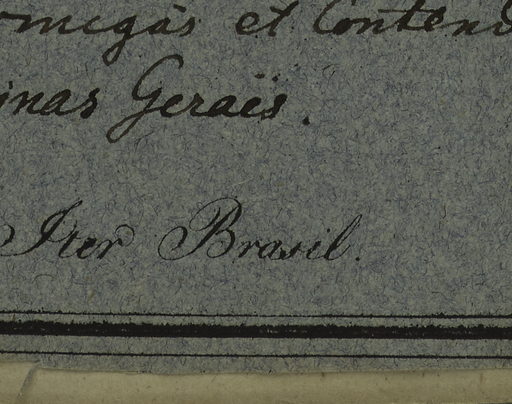 omigas et Contend
inas Geraës.
Iter Brasil.